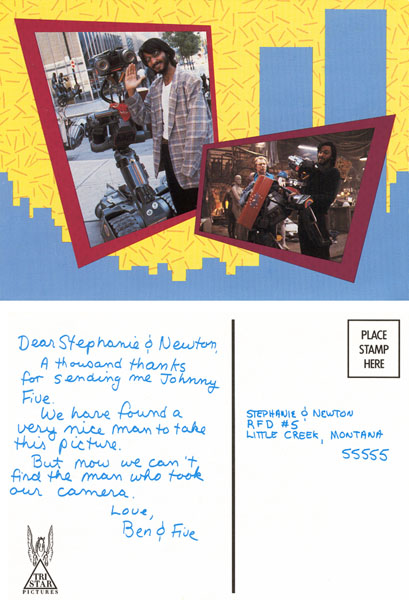 Dear Stephanie & Newton,
A thousand thanks
for sending me Johnny
Five.
We have found a
very nice man to take
this picture.
But now we can't
find the man who took
our camera.
Love,
Ben & Five
TRI
STAR
PICTURES
PLACE
STAMP
HERE
STEPHANIE & NEWTON
RFD #5
LITTLE CREEK, MONTANA
55555